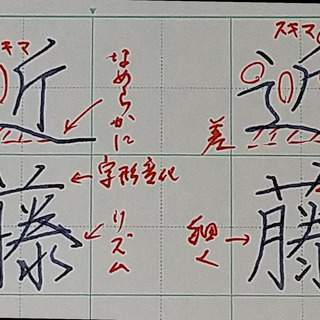 スキマ
近
なめらかに
藤
字形変化
リズム
スキマ
近
差
藤
細く